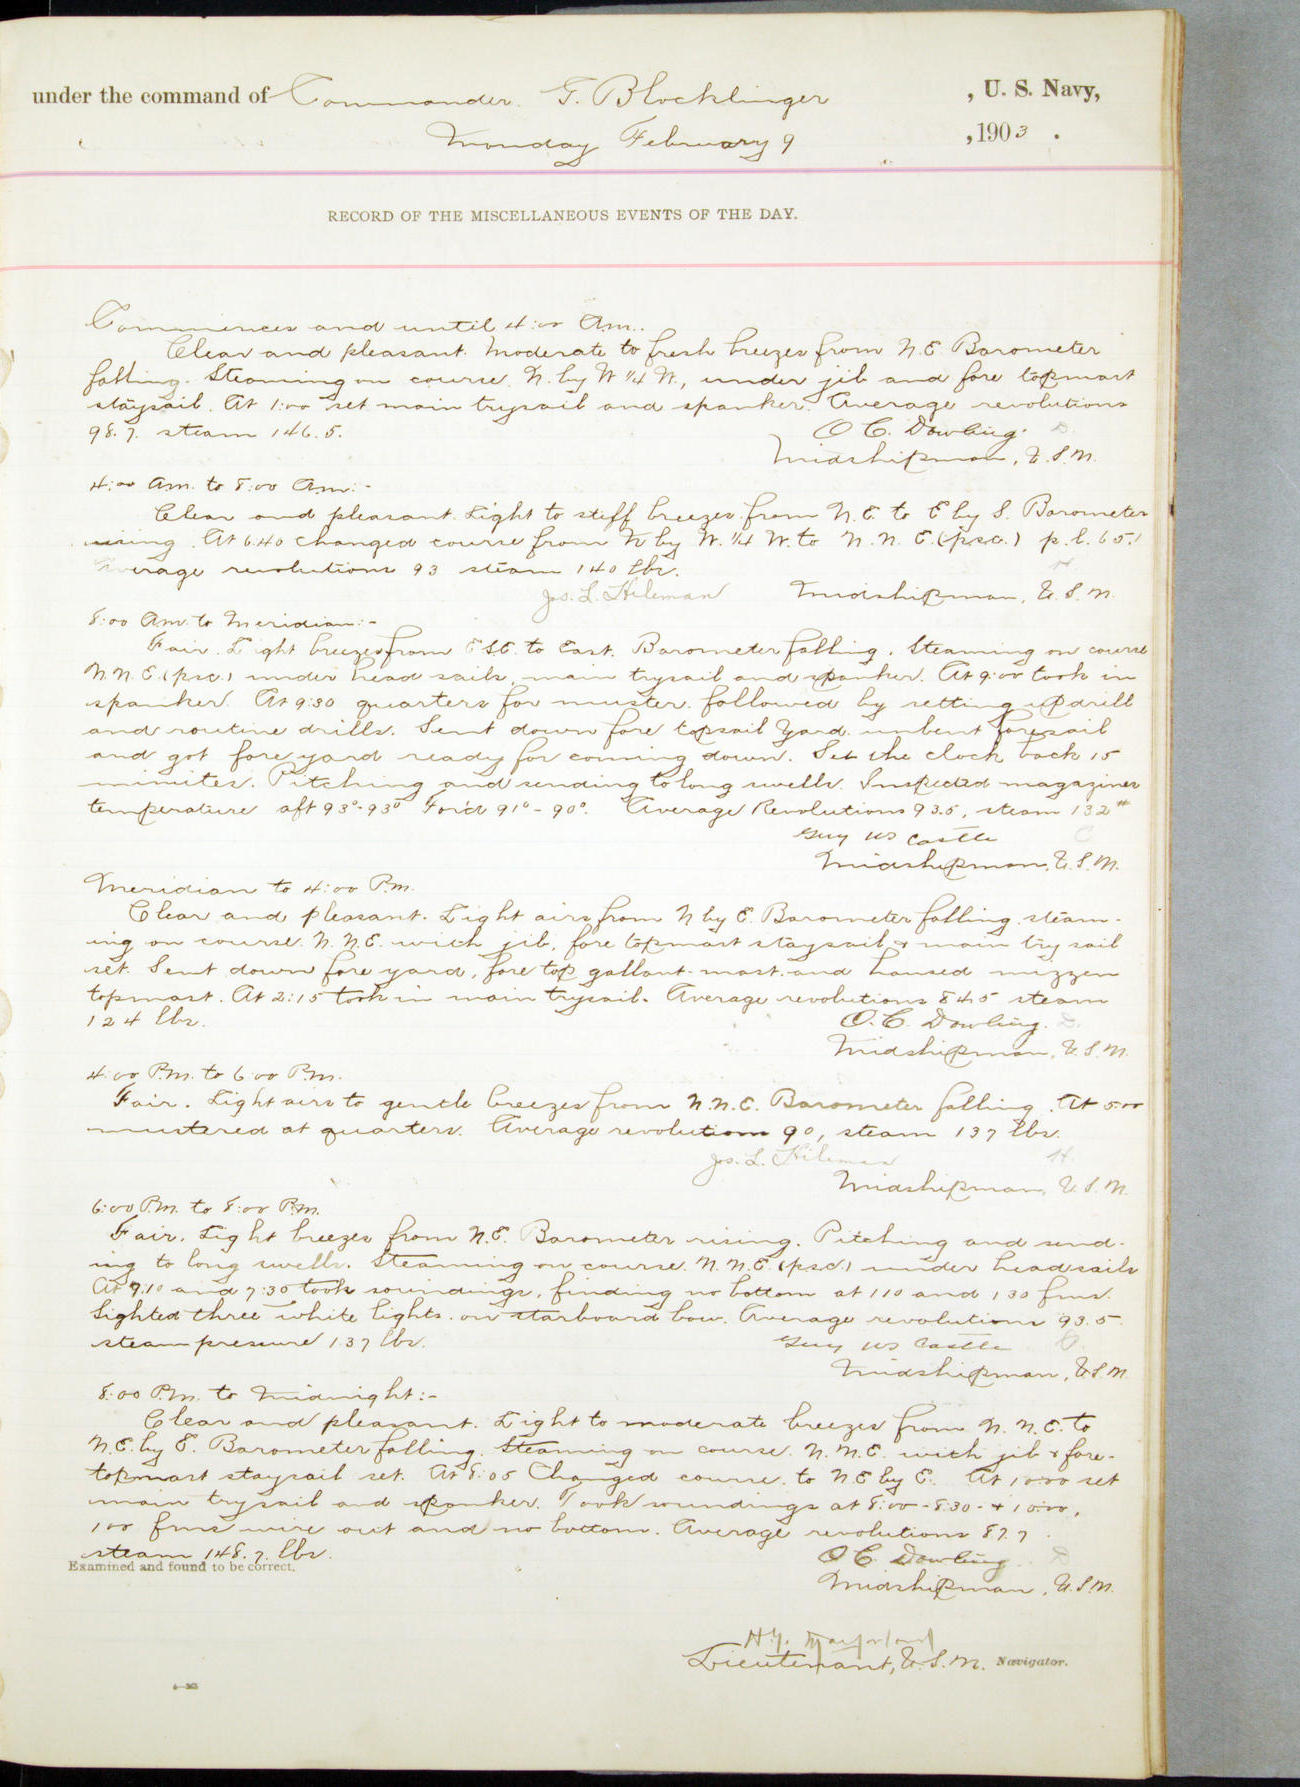 under the command of Commander G. Blocklinger, U. S. Navy,
Monday February 9, 1903.
RECORD OF THE MISCELLANEOUS EVENTS OF THE DAY.
Commences and until 4:00 A.m.
Clear and pleasant. Moderate to fresh breezes from N.E. Barometer
falling. Steaming on course N. by W ¼ W., under jib and fore topmast
staysail. At 1:00 set main trysail and spanker. Average revolutions
98.7. steam 146.5.
O C. Dowling. D.
Midshipman, U.S.N.
4:00 A.m. to 8:00 A.m:-
Clear and pleasant. Light to stiff breezes from N.E. to E by S. Barometer
rising. At 6.40 changed course from N by W. ¼ W. to N. N. E. (p.s.c.) p.l. 65.1
Average revolutions 93 steam 140 lbs.
Jos. L. Hileman Midshipman, U.S.N.
H
8:00 A.m. to Meridian:-
Fair. Light breezes from E.S.E. to East. Barometer falling. Steaming on course
N.N.E. (psc.) under head sails, main trysail and spanker. At 9:00 took in
spanker. At 9:30 quarters for muster. followed by setting up drill
and routine drills. Sent down fore topsail yard. unbent foresail
and got fore yard ready for coming down. Set the clock back 15
minutes. Pitching and sending to long swells. Inspected magazines
temperature aft 93°-93° For'd 91°-90°. Average Revolutions 93.5, steam 132#
Guy W S Castle C
Midshipman, U.S.N.
Meridian to 4:00 P.m.
Clear and pleasant. Light airs from N by E. Barometer falling. steam-
ing on course N.N.E. with jib, fore topmast staysail & main try sail
set. Sent down fore yard, fore top gallant-mast. and housed mizzen
topmast. At 2:15 took in main trysail. Average revolutions 84.5 steam
124 lbs.
O. C. Dowling. D.
Midshipman, U.S.N.
4:00 P.M. to 6:00 P.M.
Fair. Light airs to gentle breezes from N.N.E. Barometer falling. At 5:00
mustered at quarters. Average revolutions 90, steam 137 lbs.
Jos. L. Hileman H.
Midshipman, U.S.N.
6:00 P.M. to 8:00 P.M.
Fair. Light breezes from N.E. Barometer rising. Pitching and send-
ing to long swells. Steaming on course N.N.E. (psc.) under headsails
At 7.10 and 7:30 took soundings, finding no bottom at 110 and 130 fms.
Sighted three white lights on starboard bow. Average revolutions 93.5
steam pressure 137 lbs.
Guy W S Castle C.
Midshipman, U.S.N.
8:00 P.M. to Midnight:-
Clear and pleasant. Light to moderate breezes from N. N. E. to
N.E. by E. Barometer falling. Steaming on course N.N.E. with jib & fore-
topmast staysail set. At 8:05 Changed course to N E by E. At 10:00 set
main trysail and spanker. Took soundings at 8:00 - 8:30 - & 10:00,
100 fms wire out and no bottom. Average revolutions 87.7
steam 148.7 lbs.
Examined and found to be correct.
O C. Dowling. D
Midshipman, U.S.N.
Lieutenant, U.S.N. Navigator.